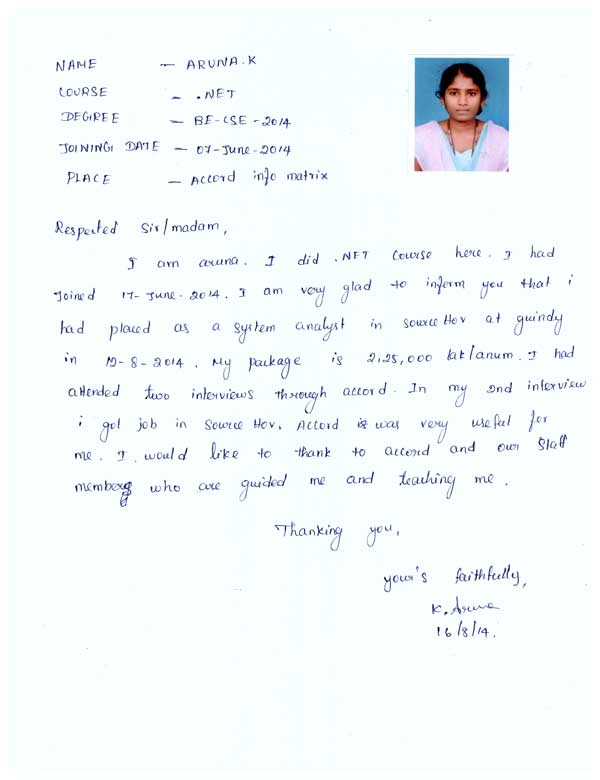 NAME — ARUNA.K
COURSE — .NET
DEGREE — BE-CSE-2014
JOINING DATE — 07-June-2014
PLACE — Accord info matrix
Respected Sir/madam,
I am aruna. I did .NET Course here. I had
Joined 17-June-2014. I am very glad to inform you that i
had placed as a System analyst in SourceHov at guindy
in 12-8-2014. My package is 2,25,000 lak/anum. I had
attended two interviews through accord. In my 2nd interview
i got job in Source Hov. Accord was very useful for
me. I would like to thank to accord and our Staff
members who are guided me and teaching me.
Thanking you,
your's faithfully,
K. Aruna
16/8/14.